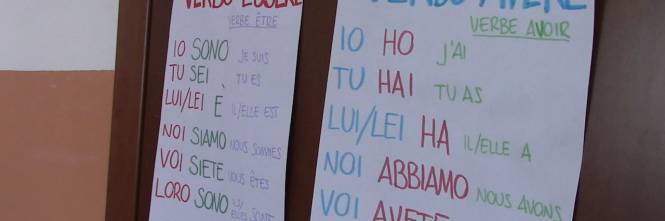 VERBO ESSERE
VERBE ÊTRE
IO SONO JE SUIS
TU SEI TU ES
LUI/LEI È IL/ELLE EST
NOI SIAMO NOUS SOMMES
VOI SIETE VOUS ÊTES
LORO SONO ILS/ELLES SONT
VERBO AVERE
VERBE AVOIR
IO HO J'AI
TU HAI TU AS
LUI/LEI HA IL/ELLE A
NOI ABBIAMO NOUS AVONS
VOI AVETE